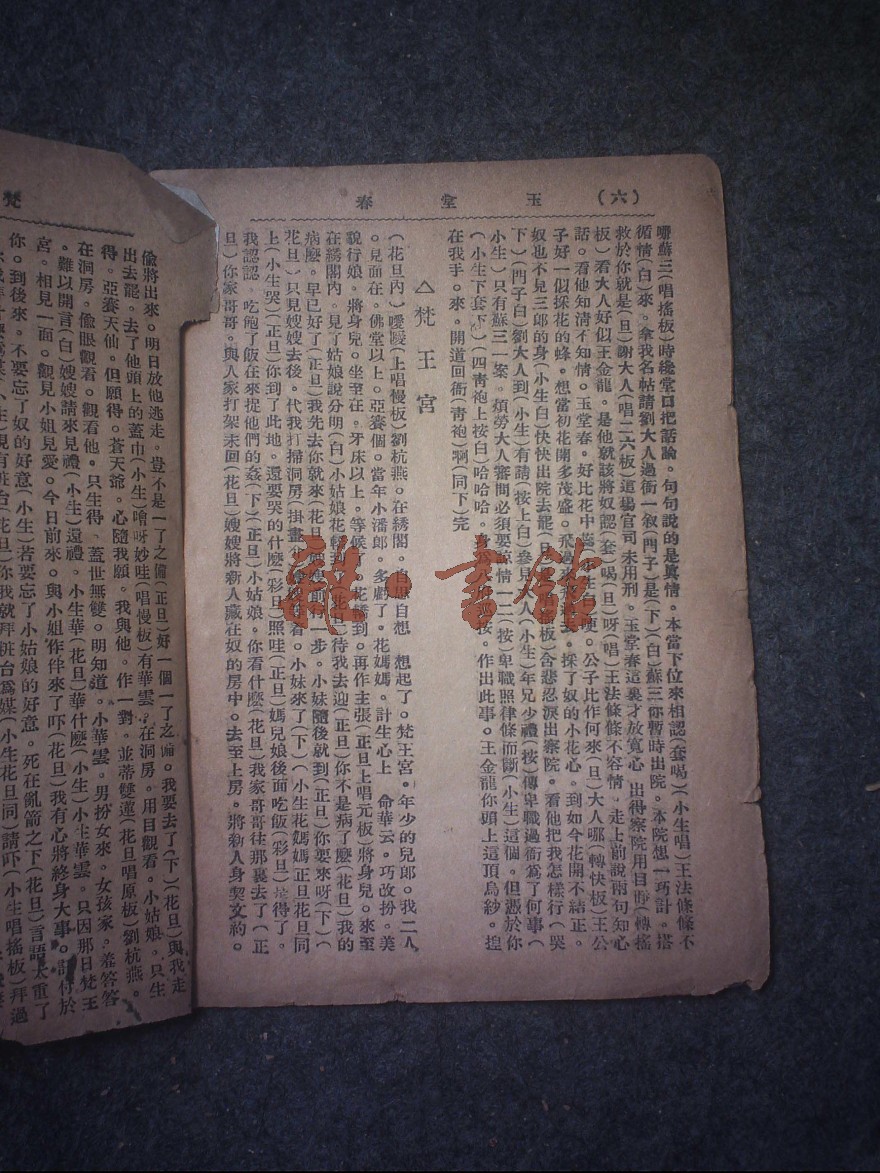 玉堂春 (六)
嚇蘇三(唱搖板)時纔堂口把話論。句句說的是眞情。本當下位來相認(套喝)(小生唱)王法條條不
循情(白)來。拿我名帖請劉大人過衙一叙(門子)是(下)(白)蘇三你暫時出院。本院想一巧計。搭
救於你就是(旦)謝大人(唱二六板)這塲官司未用刑。玉堂春這裏才放寬心 出得察院用目 (轉搖
板)看大人好似王金龍。是他就該將奴認(套)喝(旦)呀(唱)王法條條不容情。走上前說兩句知心
話。看他知淸不知情。玉堂春。好比花中 公子比作何來(旦)大人哪(轉快板)王公
子好一似採花的蜂。想當初花開多茂盛。飛過 採了奴的小花心。到如今花開不結正。
奴也不見三郎的身(小生白)快快出院去罷 板)含悲忍淚出察院。看他把我怎樣行(哭
下)(門子白)劉大人到(小生)有請(按上白)參見 人(小生)年兄少禮(按)傳卑職過衙爲了何事(
小生)只有蘇三一案。煩勞大人審問必須要諒情一二(按)卑職照律條而斷(小生)這個。但憑於你
(小生下套下)(四靑袍上按白)哈哈哈。 按。作出此事。王金龍你頭上這頂烏紗。揑
在我手。來。開道回衙(靑袍)啊(同下)完
梵王宮
(花旦內)噯 (上唱慢板)劉杭燕。在綉閣。自思自想 想起了。梵王宮。年少的兒郎。我二人
。見面在。佛堂以上。亞賽個。當年小潘郎。多虧了。花媽媽。計生心上 命華云。巧改扮。美
貌行娘。將身兒。坐至在。牙床以上。等候了。花轎到。再作主張(正旦上唱元板)將身兒。來至
在綉閣內。見了姑娘說分明(白)小姑娘花轎到 (花旦)待我去迎(正旦)你不是病了麽(花旦)我的
病麽。早已好了(正旦)我先去你就來(花旦)嫂娘前行一步。小妹隨後就到(正旦)你要來呀(下)(
花旦)只見嫂嫂去後。代我打掃洞房(掛畫 看。小妹來了(下)(小生花媽媽正旦花旦同
上(小生哭)(正旦)你到了此地。還要哭的什麽(彩旦)照哇(正旦)媽兒娘後面吃飯(彩旦) 得了。
我認認。吃飽了飯在來捉他們的姦(下)(正旦)小姑娘。你看什麽(花旦)我家哥哥往那裏去了(正
旦)你家哥哥。與人家打架未回(花旦)嫂嫂將新人藏在奴的房中。去至上房。將新人身契文約。
梵
偸將出來。明日放他逃走。豈不是一了之 (正旦)好一個一了之 。我要去了(下)(花旦)與我走
出去罷。去了他頭上的蓋巾(小生)噲呀妙哇(唱慢板)有華雲。在洞房。用目觀看。小姑娘。只生
得。亞賽天仙。但願得。蒼天爺。心隨我願。我與他。作一對。並蒂雙蓮(花旦唱原板)劉杭燕。
在洞房。偸眼觀看。觀看他。只生得。蓋世無雙。明知道。小華雲。男扮女來。女孩家。羞答答
。難以開言(白)嫂嫂請來見禮(小生)還禮。小生華(花旦)華什麽(小生)小生華雲。只因那日梵王
宮。相見一面。觀見小姐見愛。今日前來。與小姐作伴來了吓(花旦)我有心將終身大事。 付於
你。到後來。不要忘了奴的好意(小生)若要忘了小姑娘的好意。死在亂箭之下(花旦)言語太重了
現有粧台(花旦)你我就拜粧台爲媒(小生花旦同)請吓(小生唱搖板)拜過